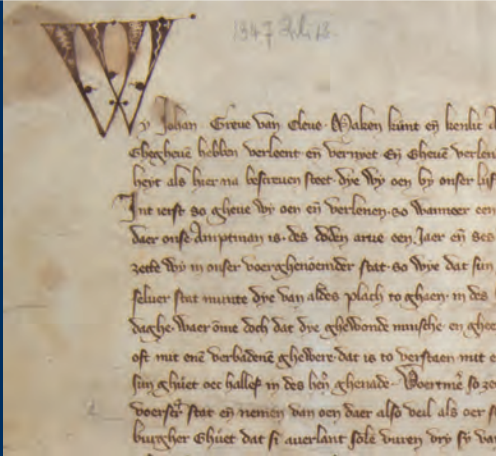 1347 Juli 13.
Wy Johan Greue van Cleue Maken kunt eñ kenlic
Ghegheuē hebben verleent eñ vernyet Eñ Gheuē verlen
heyt als hier na bescreuen steet dye Wy oen by onser
Int ierst so gheue wy oen eñ verlenen so wanneer een
daer onse Amptman is des doden arue oen Jaer eñ ses
zette wy in onser voerghenoemder stat so wye dat sun
seluer stat dye van aldes plach to ghaen in des
daghe Waer ōme doch dat dye ghewonde mysche en ghee
oft mit enē verbadenē ghewere dat is to verstaen mit e
sun ghuet oec hallef in des ghenade Voertmē so ze
stat eñ nemen van oen daer also veil als oer s
burgher Ghuet dat si auerlant solē vuren dry sy va